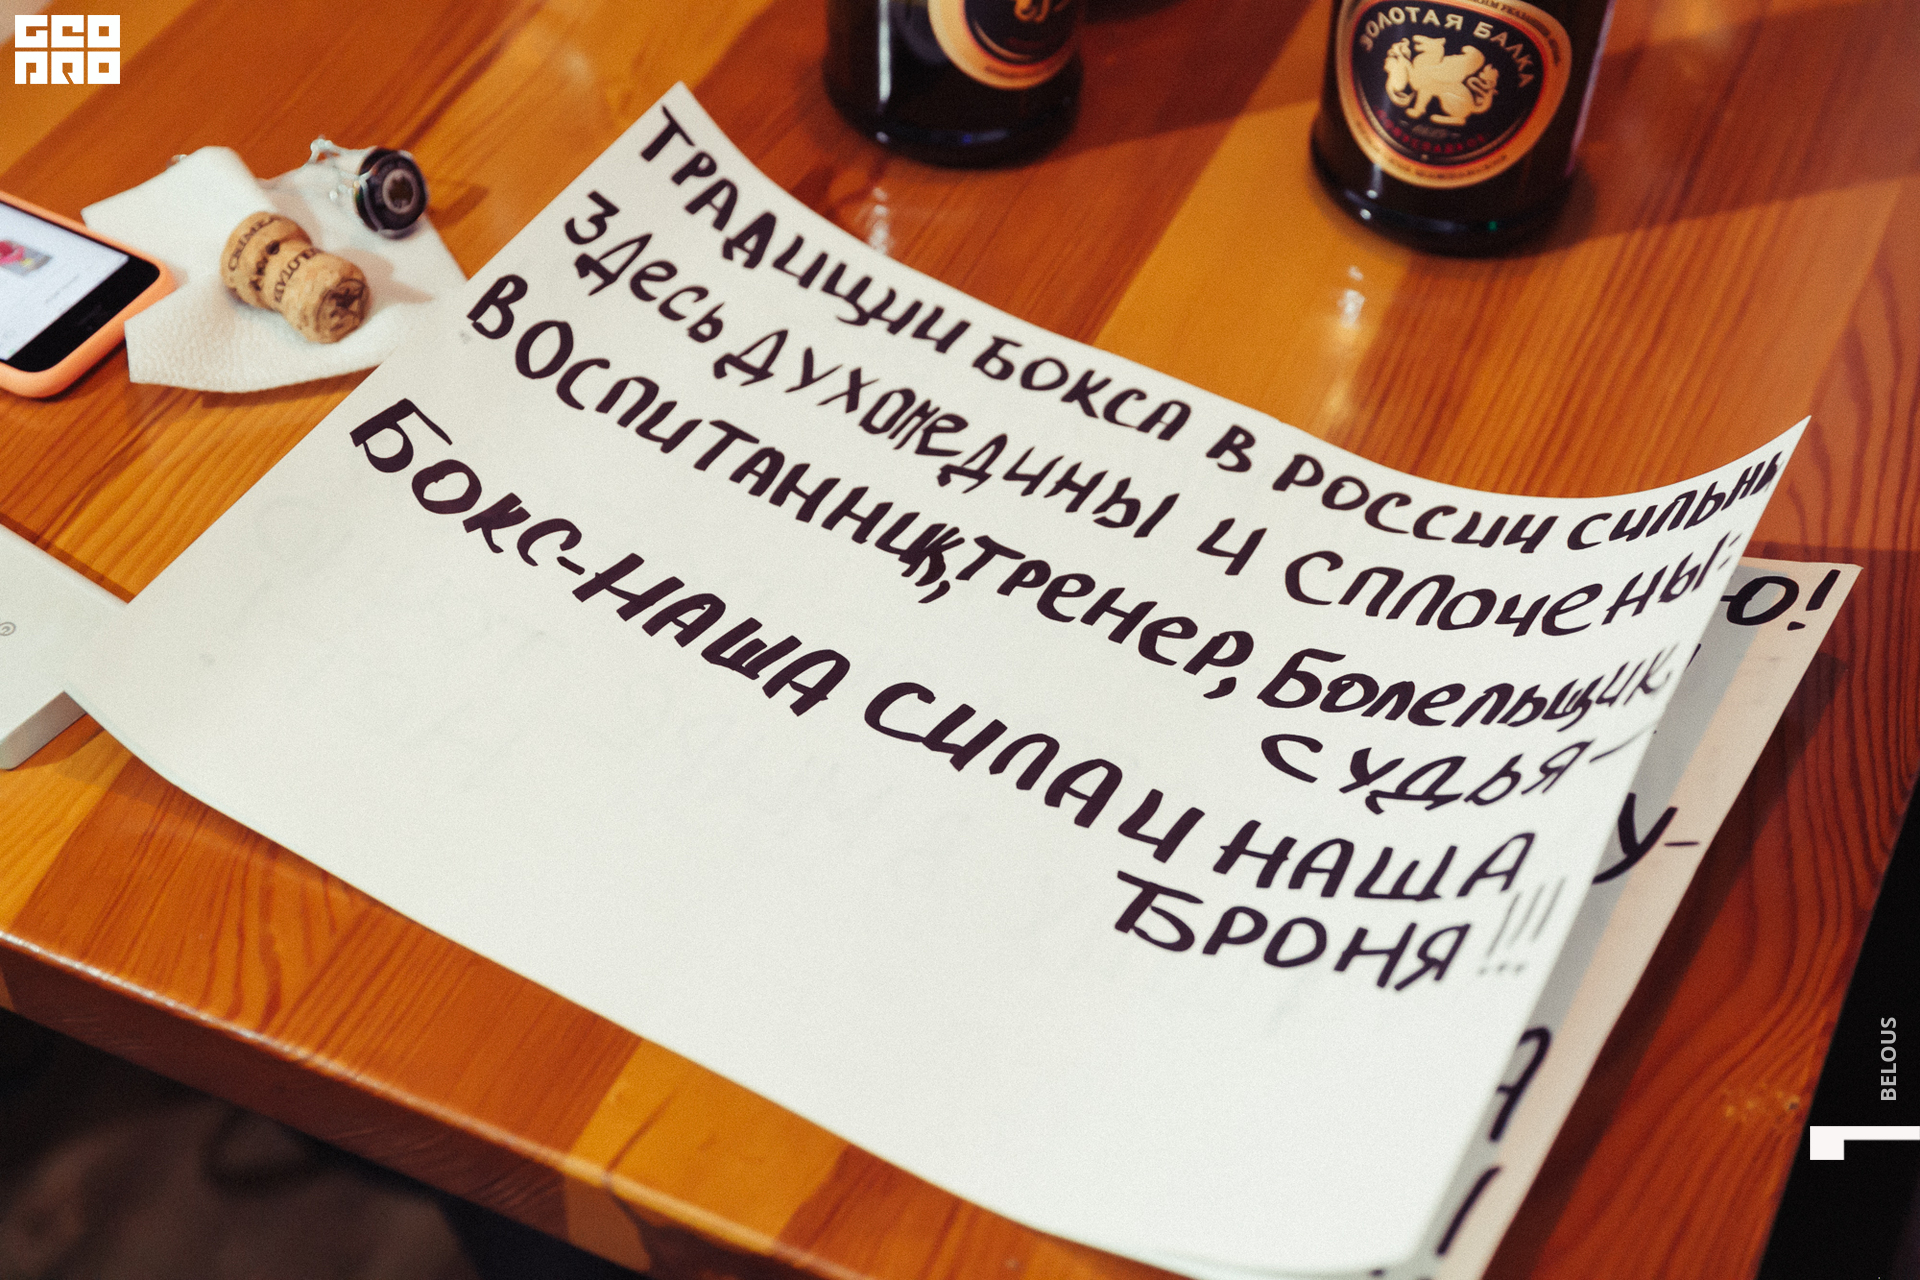 GEO
PRO
ЗОЛОТАЯ БАЛКА
ТРАДИЦИИ БОКСА В РОССИИ СИЛЬНЫ
ЗДЕСЬ ДУХОМ ЕДИНЫ И СПЛОЧЕНЫ:
ВОСПИТАННИК, ТРЕНЕР, БОЛЕЛЬЩИК,
СУДЬЯ —
БОКС-НАША СИЛА И НАША
БРОНЯ!!!
Ю!
У-
А
BELOUS